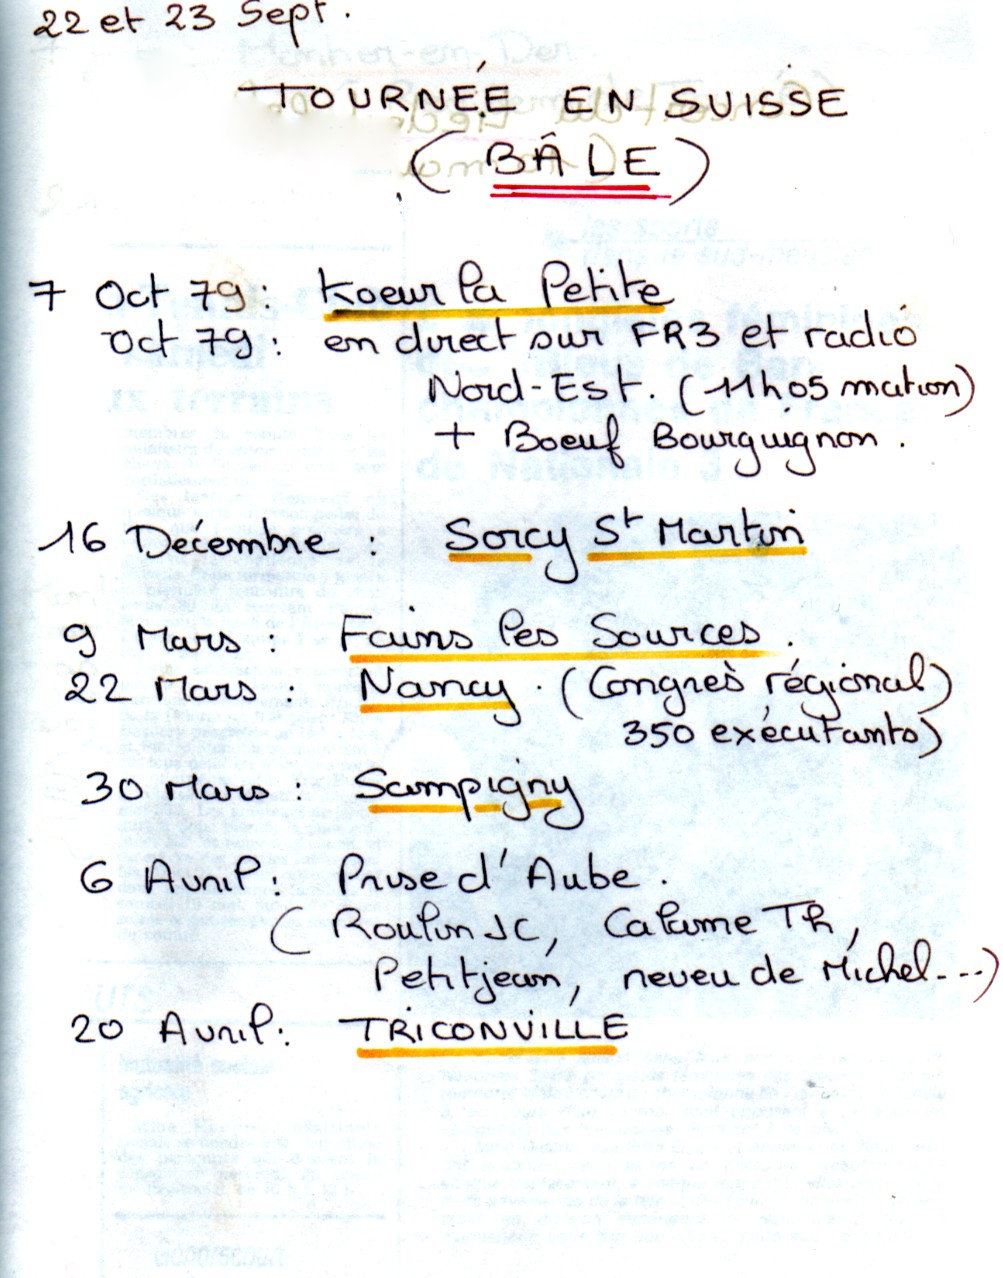 22 et 23 Sept.
TOURNÉE EN SUISSE
(BÂLE)
7 Oct 79 : Koeur la Petite
Oct 79 : en direct sur FR3 et radio
Nord-Est. (11h05 mation)
+ Boeuf Bourguignon.
16 Décembre : Sorcy St Martin
9 Mars : Fains les Sources.
22 Mars : Nancy. (Congrès régional)
350 exécutants)
30 Mars : Sampigny
6 Avril : Prise d'Aube.
(Roulin JC, Calame Th,
Petitjean, neveu de Michel---)
20 Avril : TRICONVILLE